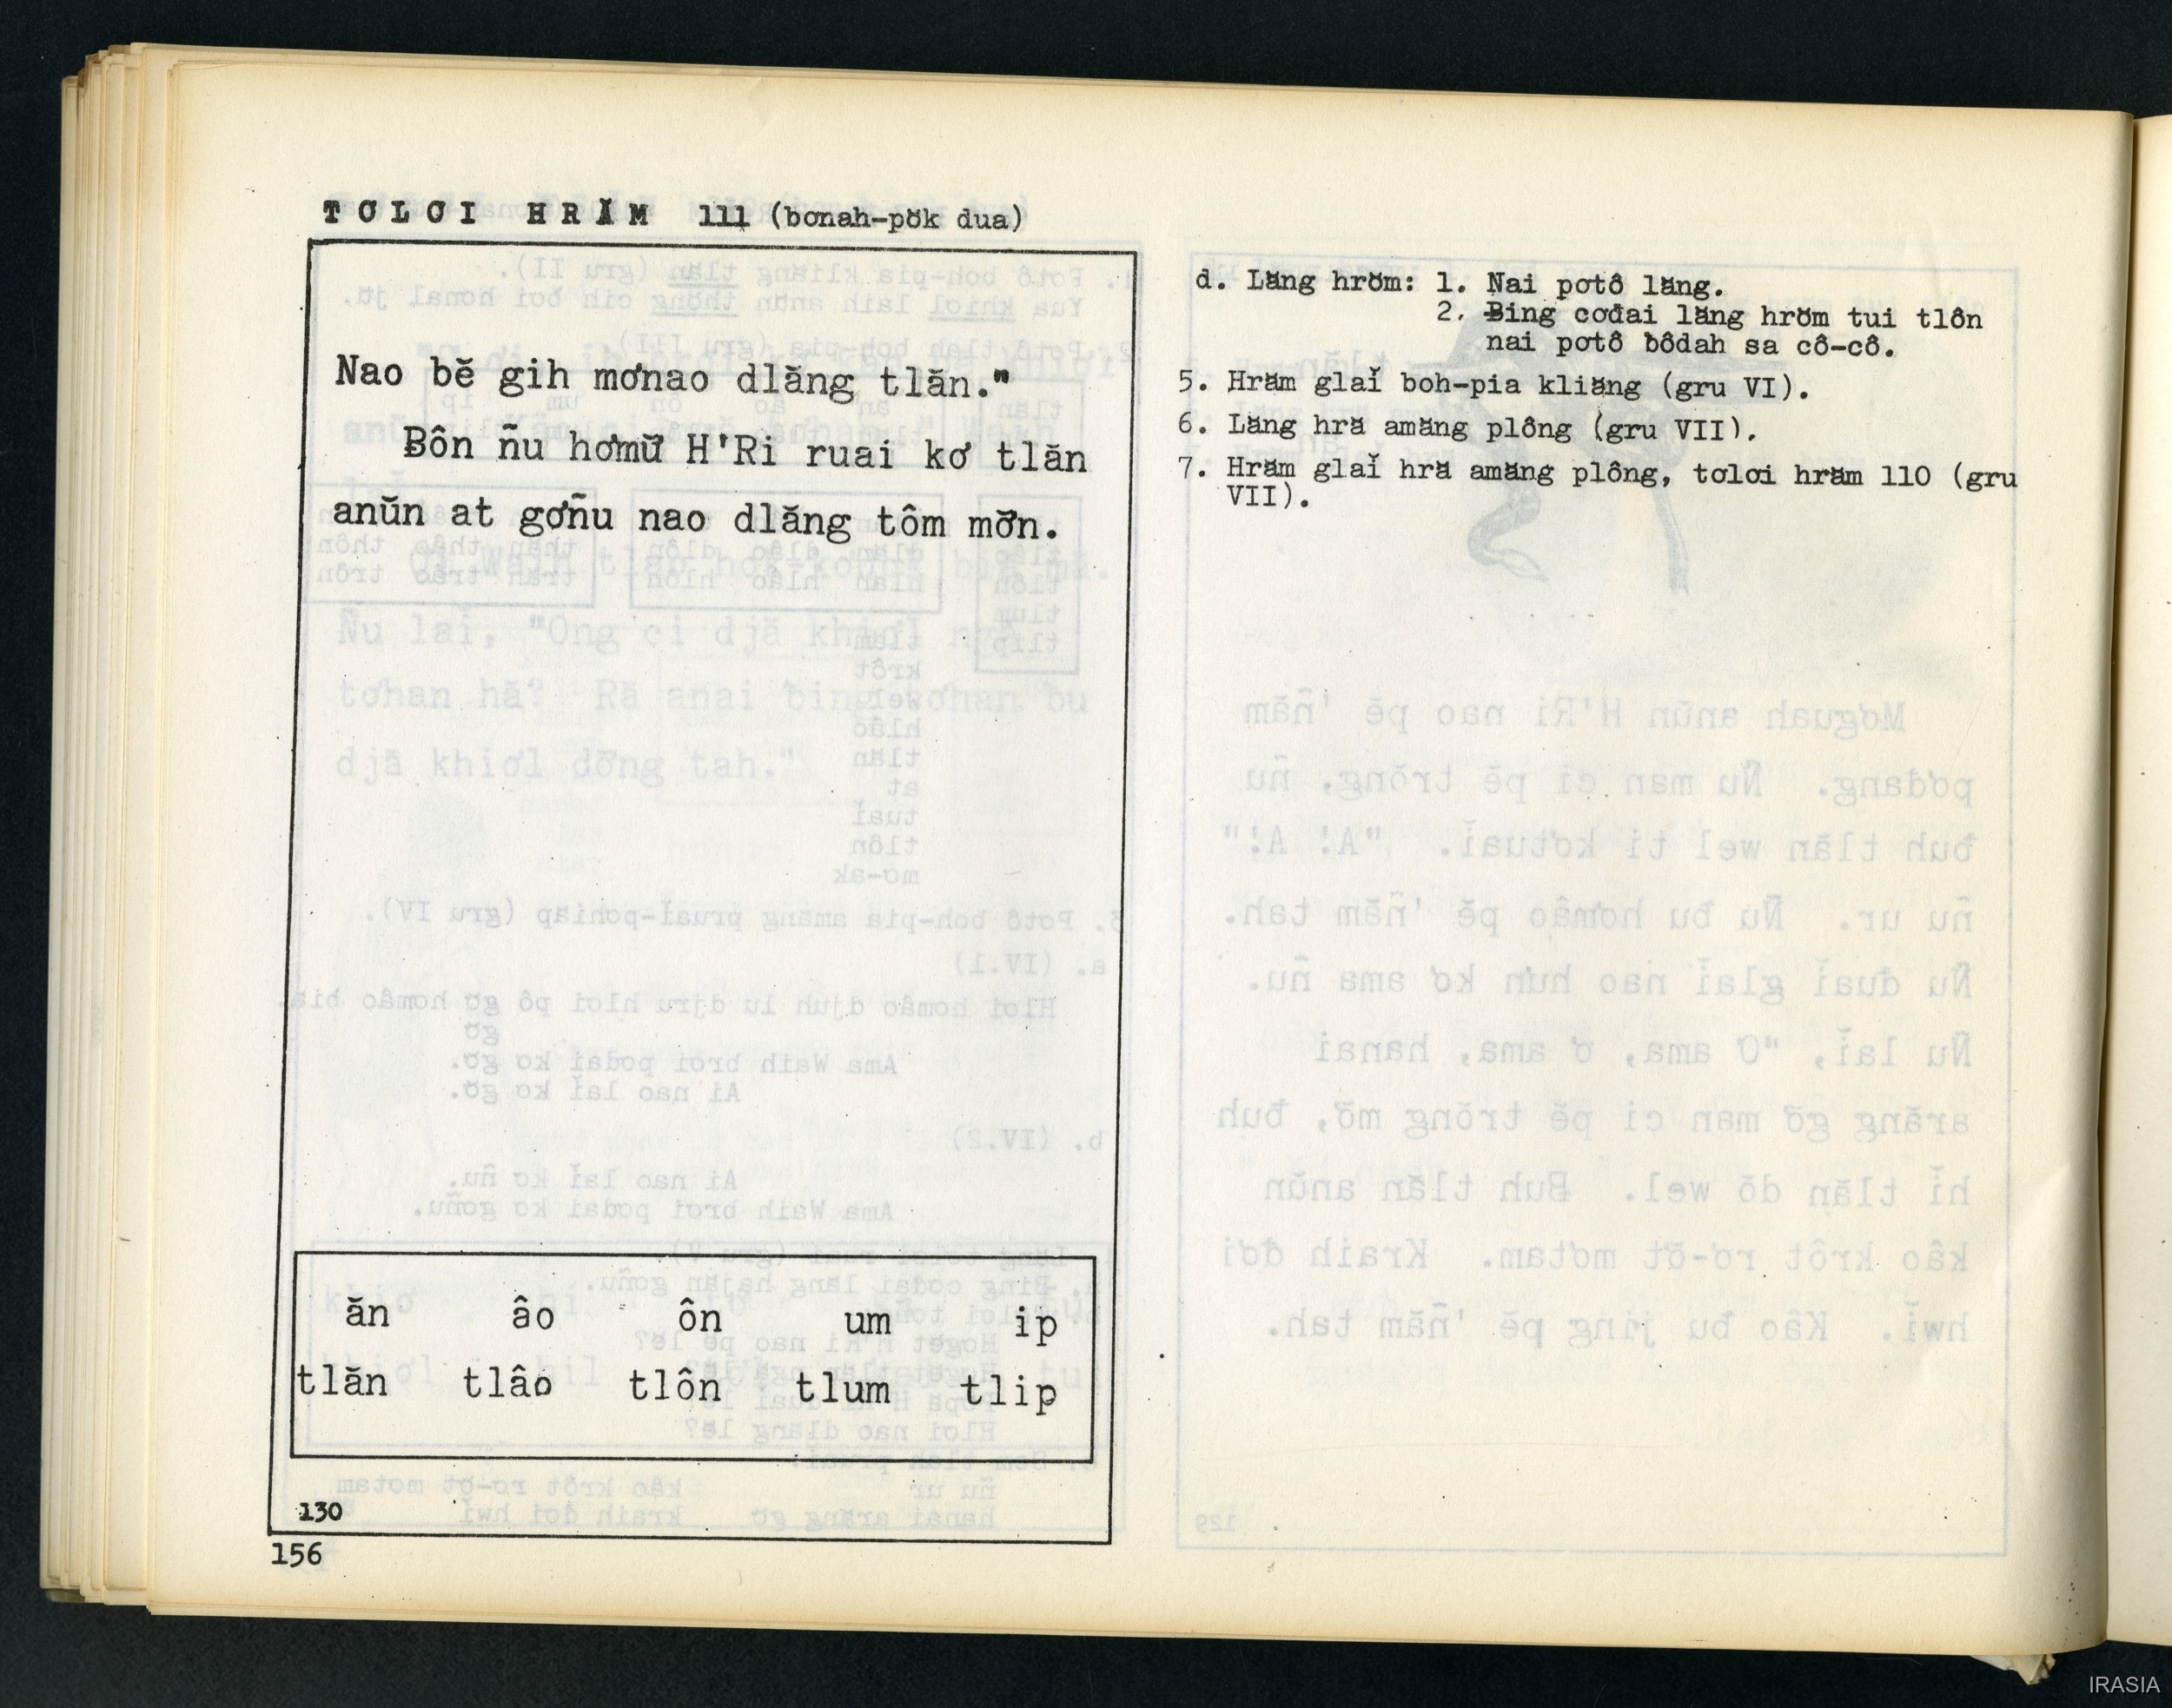 TƠLƠI HRĂM 111 (bơnah-pŏk dua)
Nao bĕ gih mơnao dlăng tlăn."
Ƀôn ñu hơmư̆ H'Ri ruai kơ tlăn
anŭn at gơñu nao dlăng tôm mơ̆n.
ăn âo ôn um ip
tlăn tlâo tlôn tlum tlip
130
156
d. Lăng hrŏm: 1. Nai pơtô lăng.
2. Ƀing cơđai lăng hrŏm tui tlôn
nai pơtô ƀôdah sa cô-cô.
5. Hrăm glaĭ boh-pia kliăng (gru VI).
6. Lăng hră amăng plông (gru VII).
7. Hrăm glaĭ hră amăng plông, tơlơi hrăm 110 (gru
VII).
IRASIA